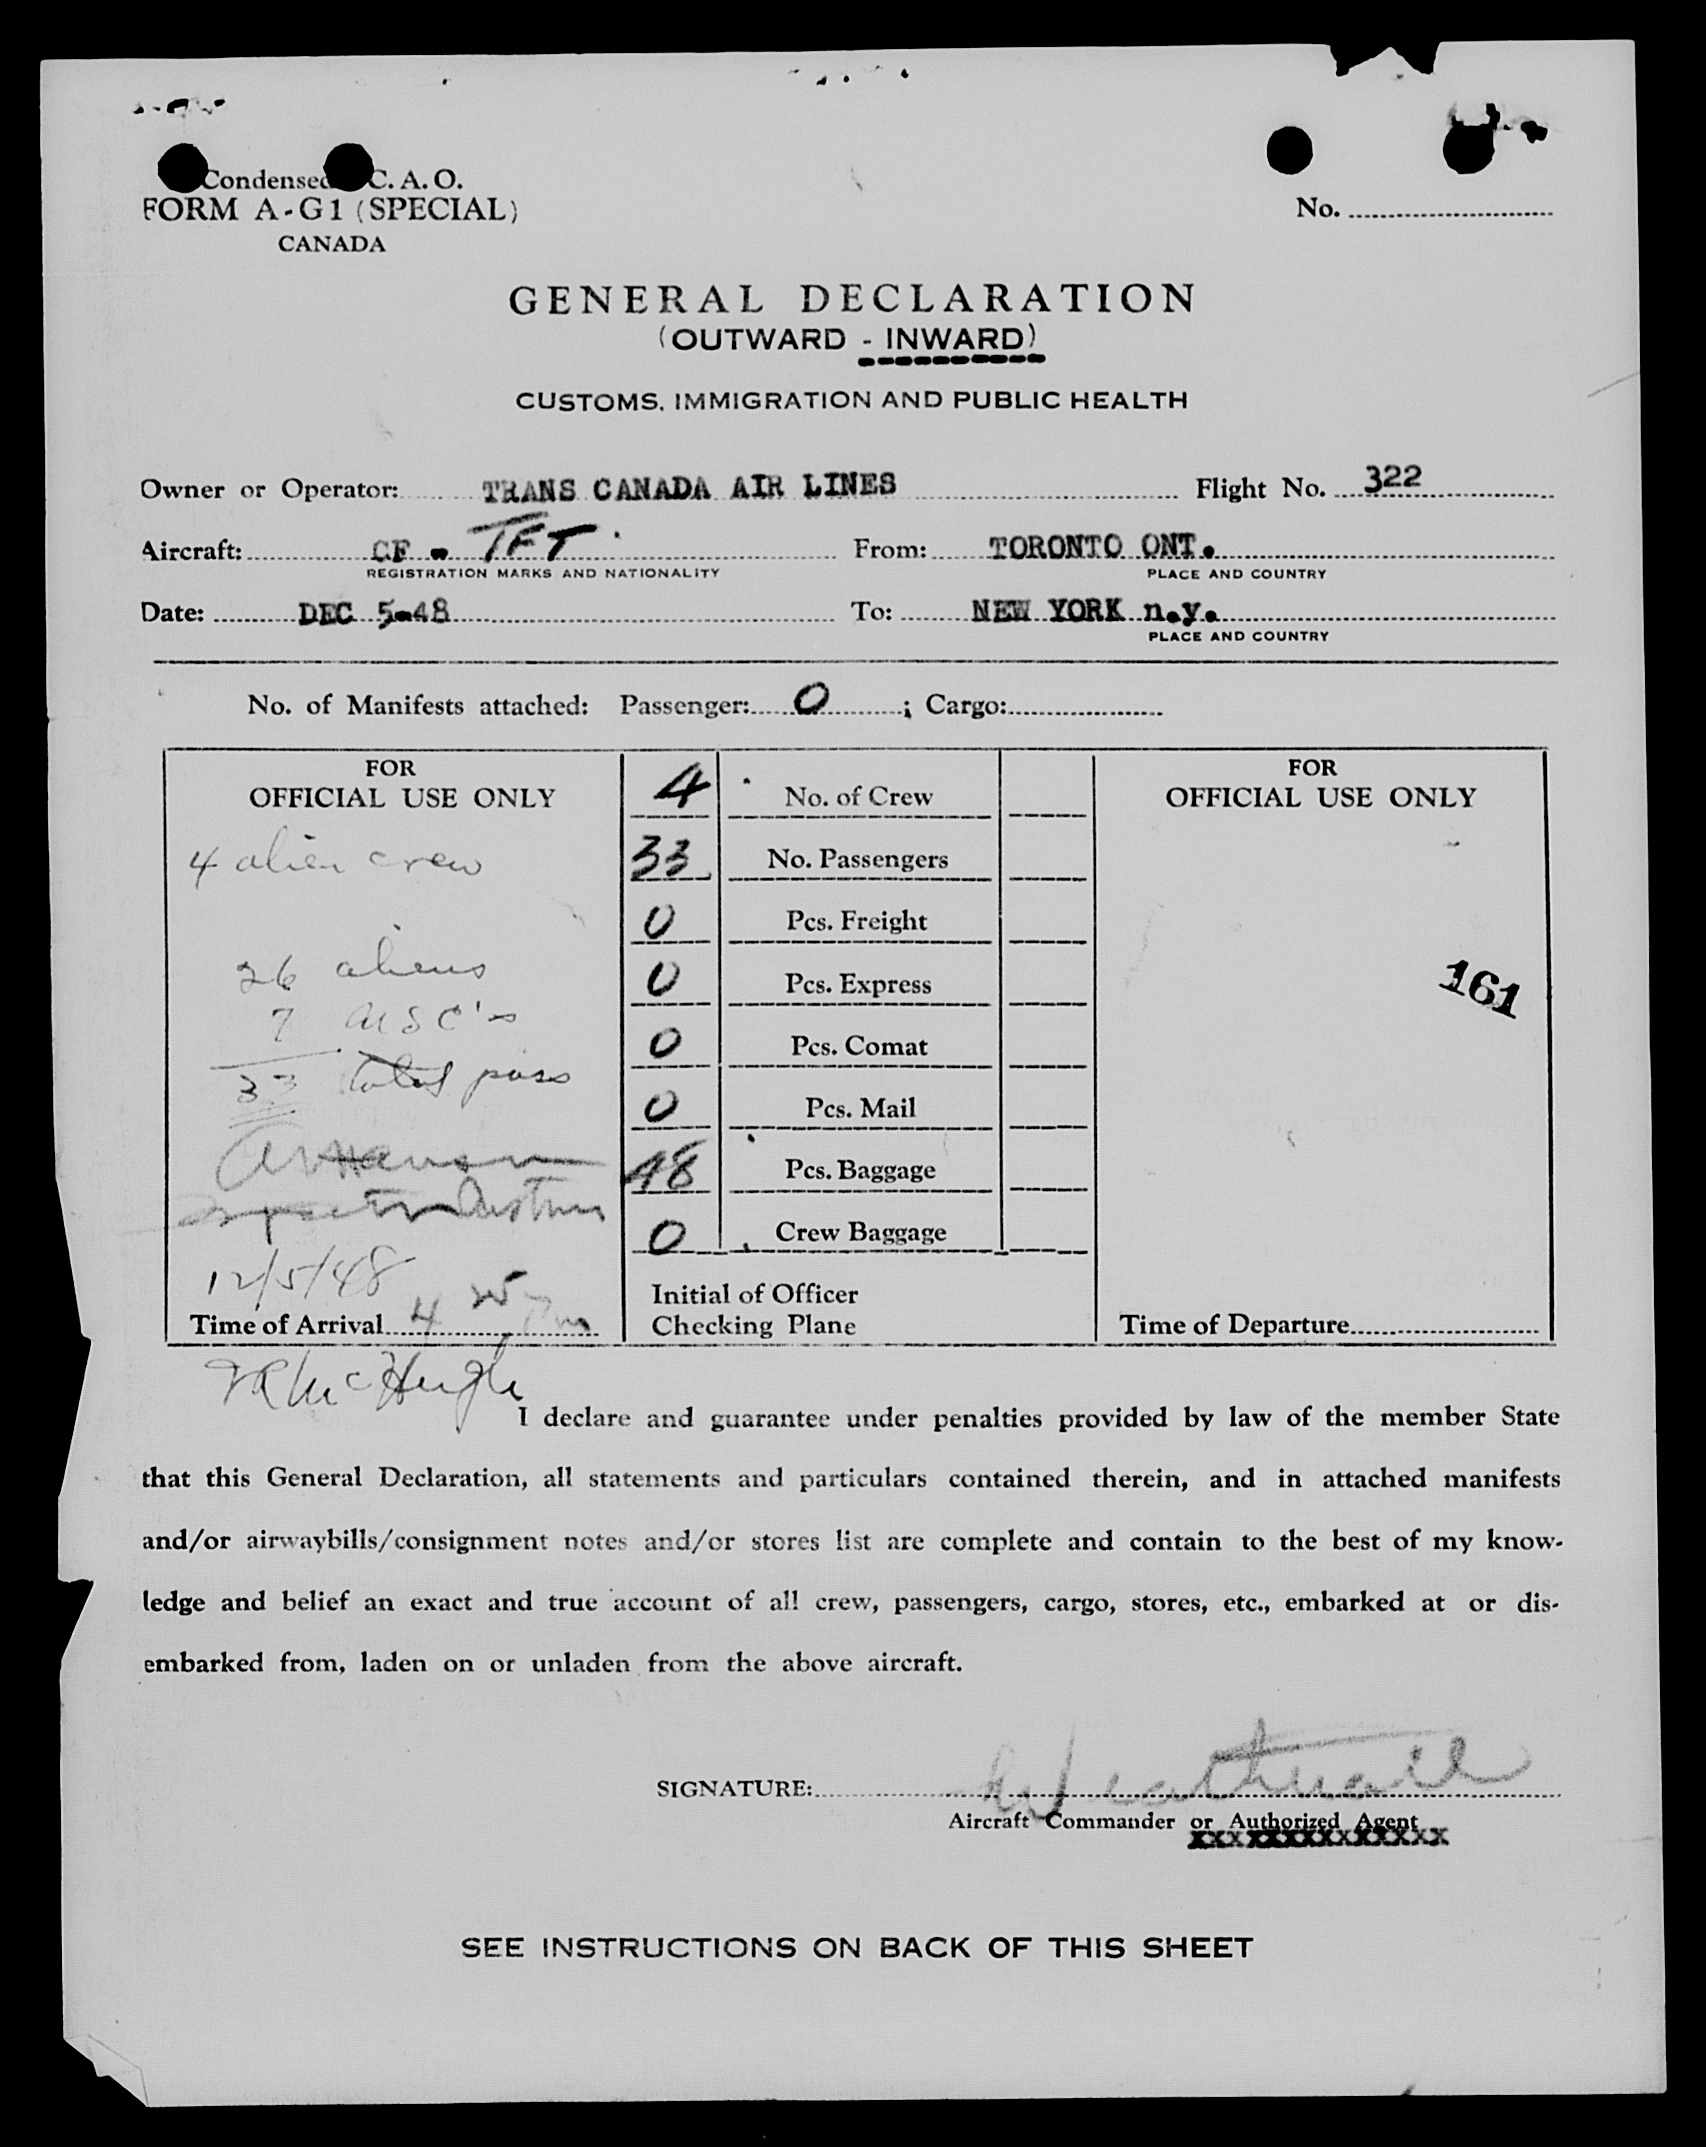 Condensed C. A. O.
FORM A-G1 (SPECIAL)
CANADA
No.
GENERAL DECLARATION
(OUTWARD - INWARD)
CUSTOMS, IMMIGRATION AND PUBLIC HEALTH
Owner or Operator: TRANS CANADA AIR LINES Flight No. 322
Aircraft: CF - TFT From: TORONTO ONT.
REGISTRATION MARKS AND NATIONALITY PLACE AND COUNTRY
Date: DEC 5-48 To: NEW YORK n.y.
PLACE AND COUNTRY
No. of Manifests attached: Passenger: 0 ; Cargo:
FOR
OFFICIAL USE ONLY
4 alien crew
26 aliens
7 USC's
33 total pass
12/5/48
Time of Arrival 4 25 Pm
4 No. of Crew
33 No. Passengers
0 Pcs. Freight
0 Pcs. Express
0 Pcs. Comat
0 Pcs. Mail
48 Pcs. Baggage
0 Crew Baggage
Initial of Officer
Checking Plane
FOR
OFFICIAL USE ONLY
161
Time of Departure
McHugh
I declare and guarantee under penalties provided by law of the member State
that this General Declaration, all statements and particulars contained therein, and in attached manifests
and/or airwaybills/consignment notes and/or stores list are complete and contain to the best of my know-
ledge and belief an exact and true account of all crew, passengers, cargo, stores, etc., embarked at or dis-
embarked from, laden on or unladen from the above aircraft.
SIGNATURE:
Aircraft Commander or Authorized Agent
xxxxxxxxxxxxxxx
SEE INSTRUCTIONS ON BACK OF THIS SHEET